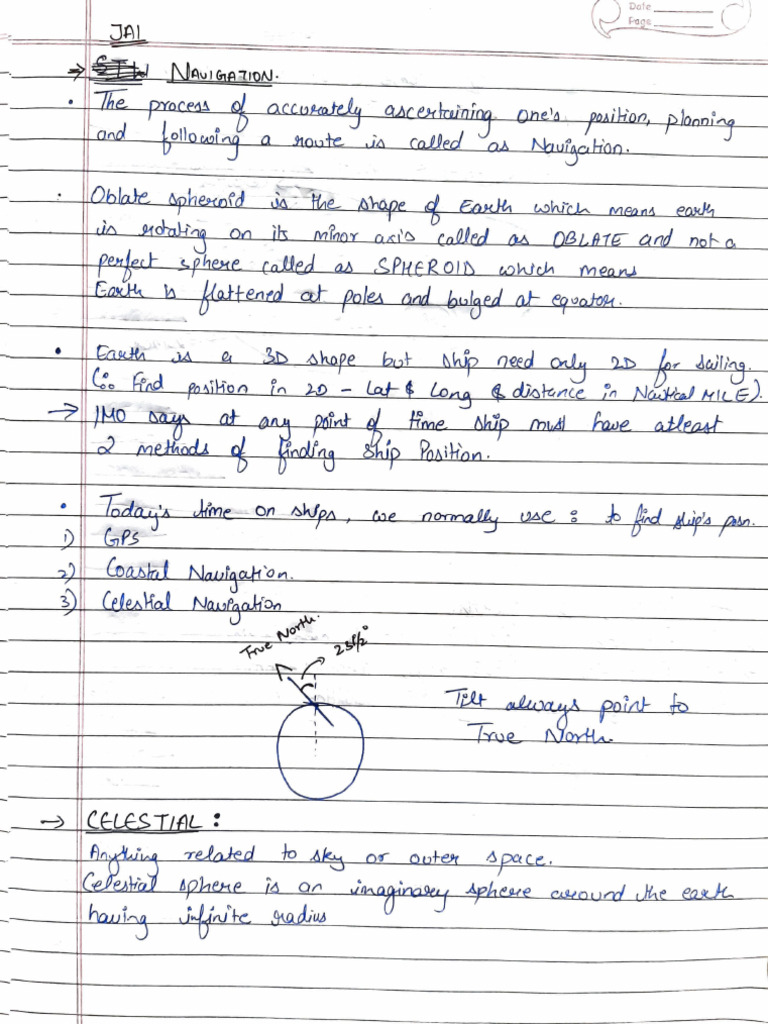 Date
Page
JAI
→ NAVIGATION.
• The process of accurately ascertaining one's position, planning
and following a route is called as Navigation.
• Oblate spheroid is the shape of Earth which means earth
is rotating on its minor axis called as OBLATE and not a
perfect sphere called as SPHEROID which means
Earth is flattened at poles and bulged at equator.
• Earth is a 3D shape but ship need only 2D for sailing.
(∴ Find position in 2D - Lat & Long & distance in Nautical MILE).
→ IMO says at any point of time ship must have atleast
2 methods of finding Ship Position.
• Today's time on ships, we normally use : to find ship's posn.
1) GPS
2) Coastal Navigation.
3) Celestial Navigation
True North.
23½°
Tilt always point to
True North.
→ CELESTIAL :
Anything related to sky or outer space.
Celestial sphere is an imaginary sphere around the earth
having infinite radius